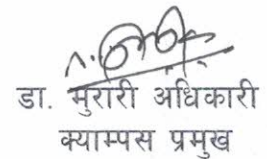 डा. मुरारी अधिकारी
क्याम्पस प्रमुख